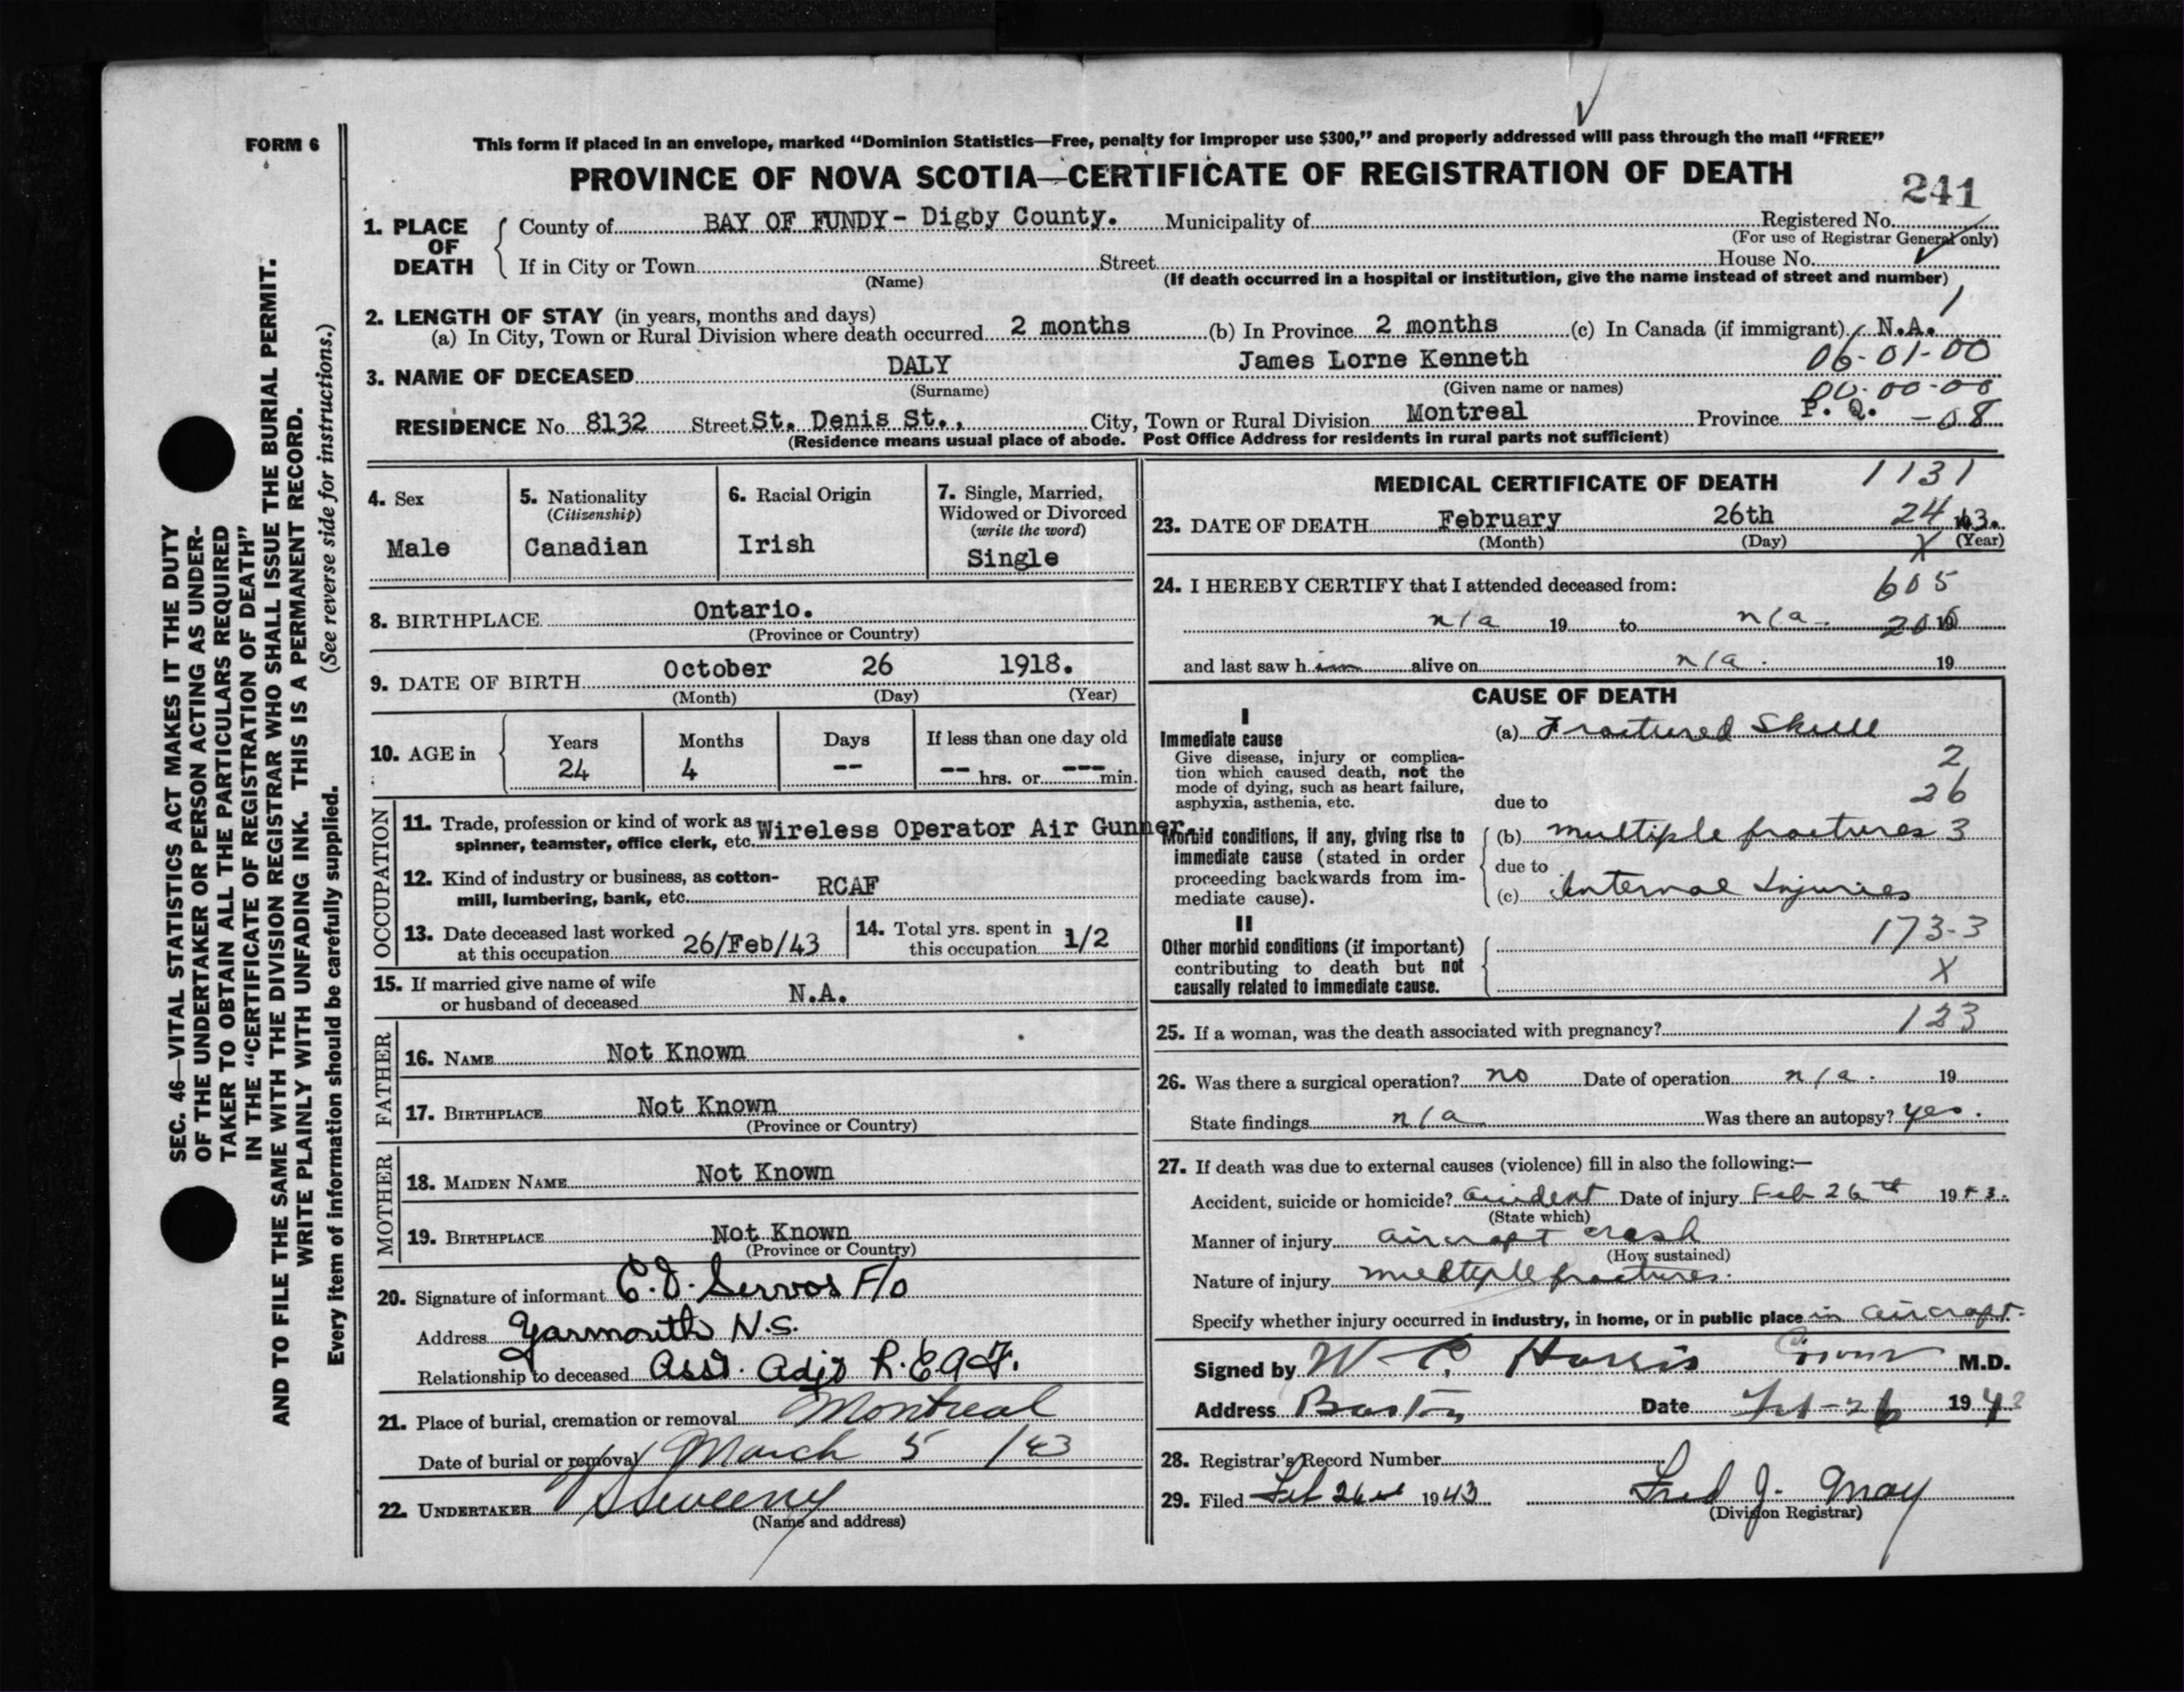 FORM 6
This form if placed in an envelope, marked “Dominion Statistics—Free, penalty for improper use $300,” and properly addressed will pass through the mail “FREE”
PROVINCE OF NOVA SCOTIA—CERTIFICATE OF REGISTRATION OF DEATH
241
1. PLACE OF DEATH
County of BAY OF FUNDY- Digby County. Municipality of Registered No.
(For use of Registrar General only)
If in City or Town Street House No.
(Name) (If death occurred in a hospital or institution, give the name instead of street and number)
2. LENGTH OF STAY (in years, months and days)
(a) In City, Town or Rural Division where death occurred 2 months (b) In Province 2 months (c) In Canada (if immigrant) N.A.
3. NAME OF DECEASED DALY James Lorne Kenneth 06-01-00
(Surname) (Given name or names) 00-00-00
RESIDENCE No. 8132 Street St. Denis St., City, Town or Rural Division Montreal Province P. Q. -08
(Residence means usual place of abode. Post Office Address for residents in rural parts not sufficient)
4. Sex
Male
5. Nationality
(Citizenship)
Canadian
6. Racial Origin
Irish
7. Single, Married,
Widowed or Divorced
(write the word)
Single
8. BIRTHPLACE Ontario.
(Province or Country)
9. DATE OF BIRTH October 26 1918.
(Month) (Day) (Year)
10. AGE in Years Months Days If less than one day old
24 4 -- -- hrs. or --- min.
OCCUPATION
11. Trade, profession or kind of work as Wireless Operator Air Gunner
spinner, teamster, office clerk, etc.
12. Kind of industry or business, as cotton- RCAF
mill, lumbering, bank, etc.
13. Date deceased last worked
at this occupation 26/Feb/43
14. Total yrs. spent in
this occupation 1/2
15. If married give name of wife
or husband of deceased N.A.
FATHER
16. NAME Not Known
17. BIRTHPLACE Not Known
(Province or Country)
MOTHER
18. MAIDEN NAME Not Known
19. BIRTHPLACE Not Known
(Province or Country)
20. Signature of informant C.D. Servos F/o
Address Yarmouth N.S.
Relationship to deceased Asst. Adjt R.C.A.F.
21. Place of burial, cremation or removal Montreal
Date of burial or removal March 5 /43
22. UNDERTAKER Sweeny
(Name and address)
MEDICAL CERTIFICATE OF DEATH 1131
23. DATE OF DEATH February 26th 24 43.
(Month) (Day) X (Year)
24. I HEREBY CERTIFY that I attended deceased from: 605
n/a 19 to n/a. 19
and last saw h im alive on n/a. 19
CAUSE OF DEATH
I
Immediate cause
Give disease, injury or complica-
tion which caused death, not the
mode of dying, such as heart failure,
asphyxia, asthenia, etc.
(a) Fractured Skull
2
26
due to
Morbid conditions, if any, giving rise to
immediate cause (stated in order
proceeding backwards from im-
mediate cause).
(b) multiple fractures 3
due to
(c) Internal Injuries
II
Other morbid conditions (if important)
contributing to death but not
causally related to immediate cause.
173-3
X
25. If a woman, was the death associated with pregnancy? 123
26. Was there a surgical operation? no Date of operation n/a. 19
State findings n/a Was there an autopsy? yes.
27. If death was due to external causes (violence) fill in also the following:—
Accident, suicide or homicide? accident Date of injury Feb 26th 1943.
(State which)
Manner of injury aircraft crash
(How sustained)
Nature of injury multiple fractures.
Specify whether injury occurred in industry, in home, or in public place in aircraft.
Signed by W. C. Harris M.D.
Address Date Feb-26 1943
28. Registrar's Record Number
29. Filed Feb 26 1943 Fred J. May
(Division Registrar)
SEC. 46—VITAL STATISTICS ACT MAKES IT THE DUTY
OF THE UNDERTAKER OR PERSON ACTING AS UNDER-
TAKER TO OBTAIN ALL THE PARTICULARS REQUIRED
IN THE “CERTIFICATE OF REGISTRATION OF DEATH”
AND TO FILE THE SAME WITH THE DIVISION REGISTRAR WHO SHALL ISSUE THE BURIAL PERMIT.
WRITE PLAINLY WITH UNFADING INK. THIS IS A PERMANENT RECORD.
Every item of information should be carefully supplied. (See reverse side for instructions.)